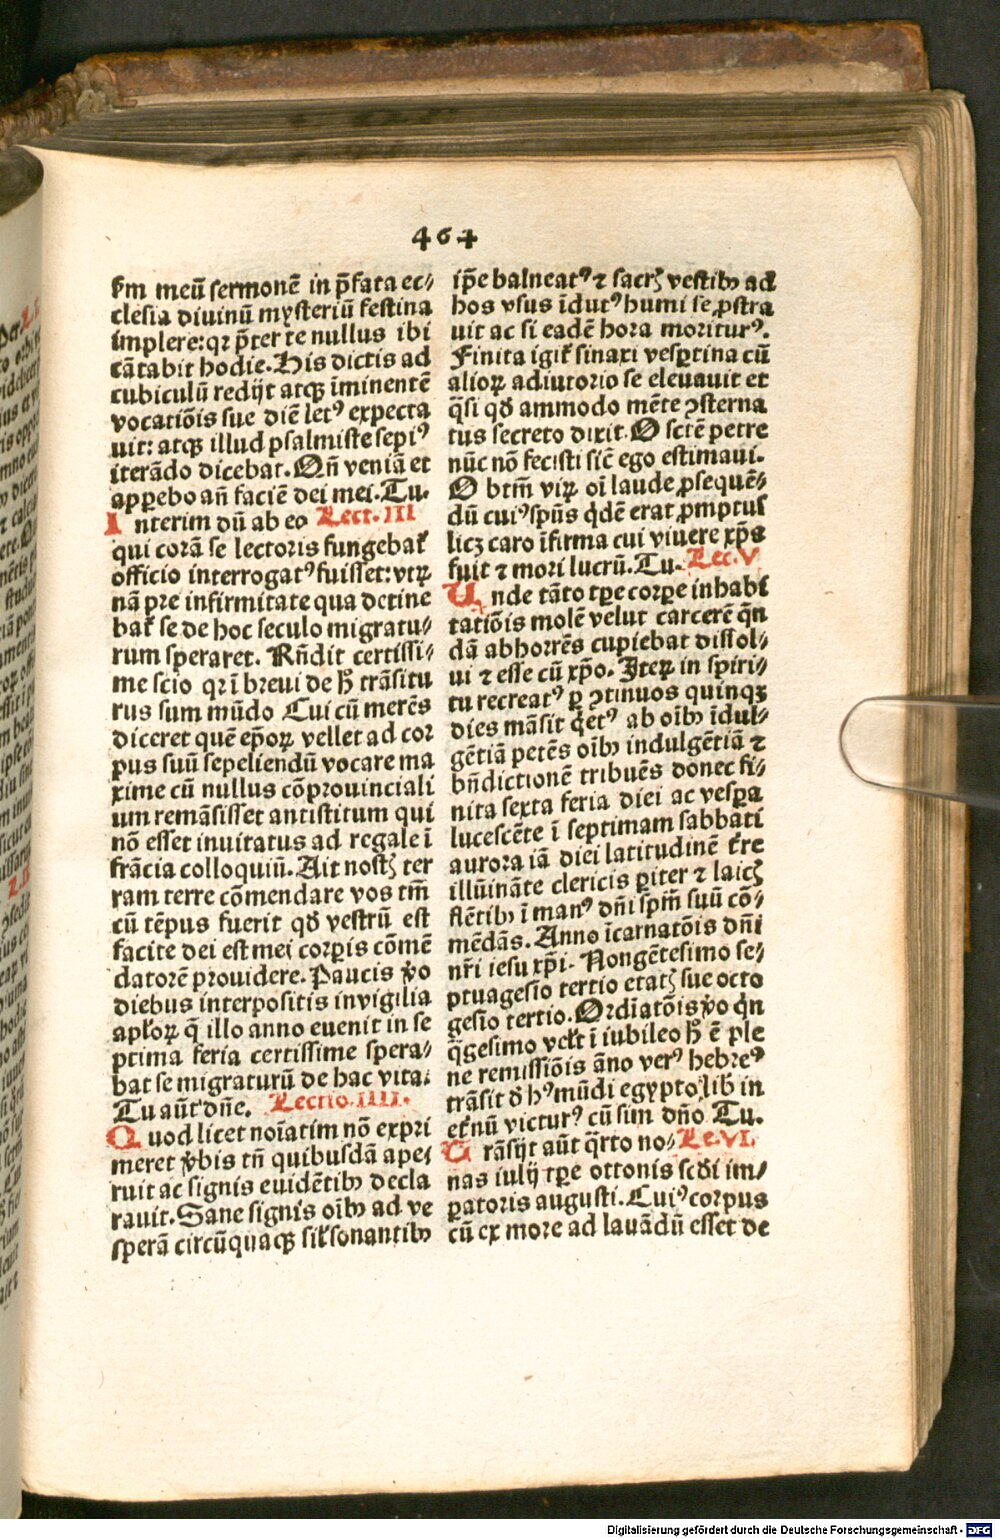 464
ẜm meū sermonē in p̄fata ec⸗
clesia diuinū mysteriū festina
implere: qꝛ p̄ter te nullus ibi
cātabit hodie. His dictis ad
cubiculū redijt atqꝫ īminentē
vocatiōis sue diē letꝰ expecta
uit: atqꝫ illud psalmiste sepiꝰ
iterādo dicebat. Qn̄ veniā et
apꝑebo an̄ faciē dei mei. Tu.
Interim dū ab eo Lect. III
qui corā se lectoris fungebat̉
officio interrogatꝰ fuisset: vtꝝ
nā p̱re infirmitate qua detine
bat̉ se de hoc seculo migratu⸗
rum speraret. Rn̄dit certissi⸗
me scio qꝛ ī breui de h̄ trāsitu
rus sum mūdo Cui cū merēs
diceret quē ep̄oꝝ vellet ad cor
pus suū sepeliendū vocare ma
xime cū nullus cōprouinciali
um remāsisset antistitum qui
nō esset inuitatus ad regale ī
frācia colloquiū. Ait nostꝫ ter
ram terre cōmendare vos tm̄
cū tēpus fuerit qđ vestrū est
facite dei est mei corꝑis cōmē
datorē prouidere. Paucis v̊o
diebus interpositis in vigilia
apl̓oꝝ q̄ illo anno euenit in se
ptima feria certissime spera⸗
bat se migraturū de hac vita.
Tu aūt dn̄e. Lectio. IIII.
Quod licet noīatim nō expri
meret v̊bis tn̄ quibusdā ape⸗
ruit ac signis euidētibꝰ decla
rauit. Sane signis oībꝰ ad ve
sperā circūquaqꝫ sil̓ sonantibꝰ
ip̄e balneatꝰ ⁊ sacrꝭ vestibꝰ ad
hos vsus īdutꝰ humi se ꝓstra
uit ac si eadē hora moriturꝰ.
Finita igit̉ sinaxi vesꝑtina cū
alioꝝ adiutorio se eleuauit et
q̄si qđ ammodo mēte ꝯsterna
tus secreto dixit. O sctē petre
nūc nō fecisti sic̄ ego estimaui.
O btm̄ viꝝ oī laude ꝓsequē⸗
dū cuiꝰ sp̄us q̇dē erat ꝓmptus
licꝫ caro īfirma cui viuere xp̄s
fuit ⁊ mori lucrū. Tu. Lec. V
Unde tāto tꝑe corꝑe inhabi
tatiōis molē velut carcerē qn̄
dā abhorrēs cupiebat dissol⸗
ui ⁊ esse cū xp̄o. Iteꝝ in spiri⸗
tu recreatꝰ ꝑ ꝯtinuos quinqꝫ
dies māsit q̇etꝰ ab oībꝰ īdul⸗
gētiā petēs oībꝰ indulgētiā ⁊
bn̄dictionē tribuēs donec fi⸗
nita sexta feria diei ac vesꝑa
lucescēte ī septimam sabbati
aurora iā diei latitudinē t̉re
illūināte clericis ꝑiter ⁊ laicꝭ
flētibꝰ ī manꝰ dn̄i sp̄m suū cō⸗
mēdās. Anno īcarnatōis dn̄i
nr̄i iesu xp̄i. Nongētesimo se⸗
ptuagesīo tertio etatꝭ sue octo
gesīo tertio. Ordīatōis v̊o qn̄
q̄gesimo vel̓ ī iubileo h̄ ē ple
ne remissiōis āno verꝰ hebreꝰ
trāsit đ hꝰ mūdi egypto lib̄ in
et̉nū victurꝰ cū sun dn̄o Tu.
Trāsijt aūt q̄rto no⸗ Le. VI.
nas iulij tꝑe ottonis scđi im⸗
ꝑatoris augusti. Cuiꝰ corpus
cū ex more ad lauādū esset de
Digitalisierung gefördert durch die Deutsche Forschungsgemeinschaft - DFG